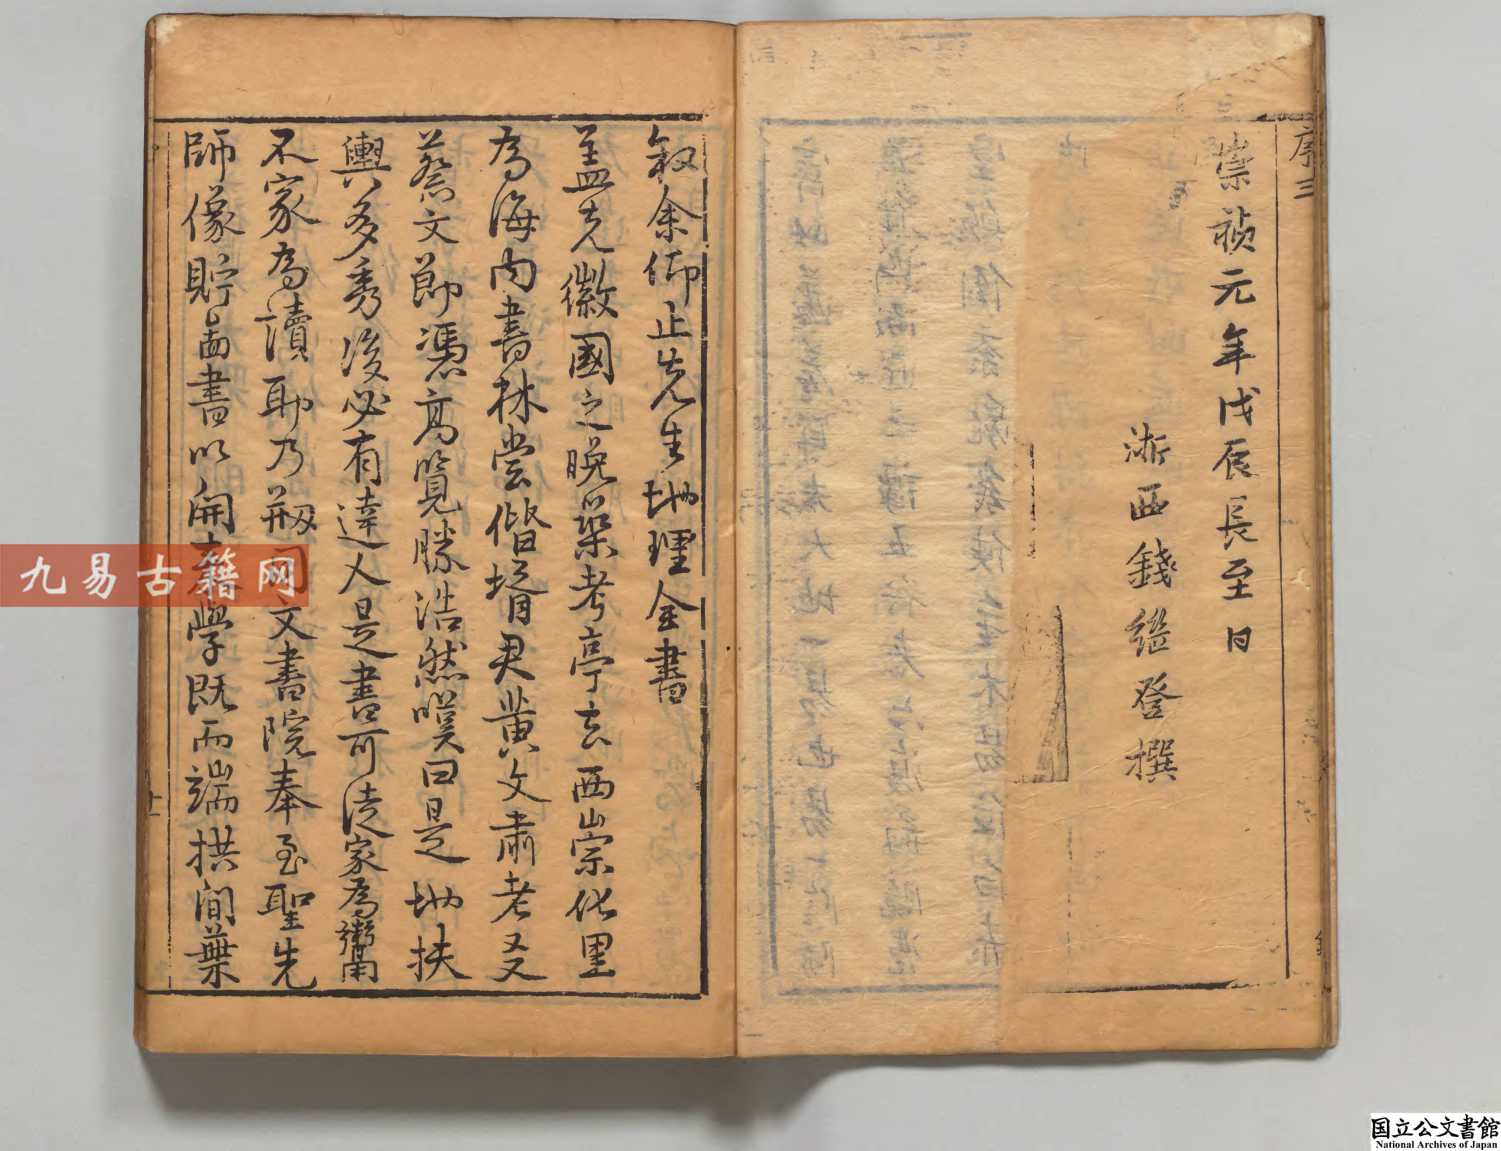 序三
崇禎元年戊辰長至日
浙西錢繼登撰
叙余仰止先生地理全書
盖先徽國之晚築考亭玄西山宗化里
為海内書林嘗偕壻君黄文肅老又
蔡文節憑高覽勝浩然嘆曰是地扶
輿多秀後必有達人是書可徒家為鬻
不家為讀耶乃剏同文書院奉至聖先
師像貯畵書以開来學既而端拱间葉
九易古籍网
国立公文書館
National Archives of Japan